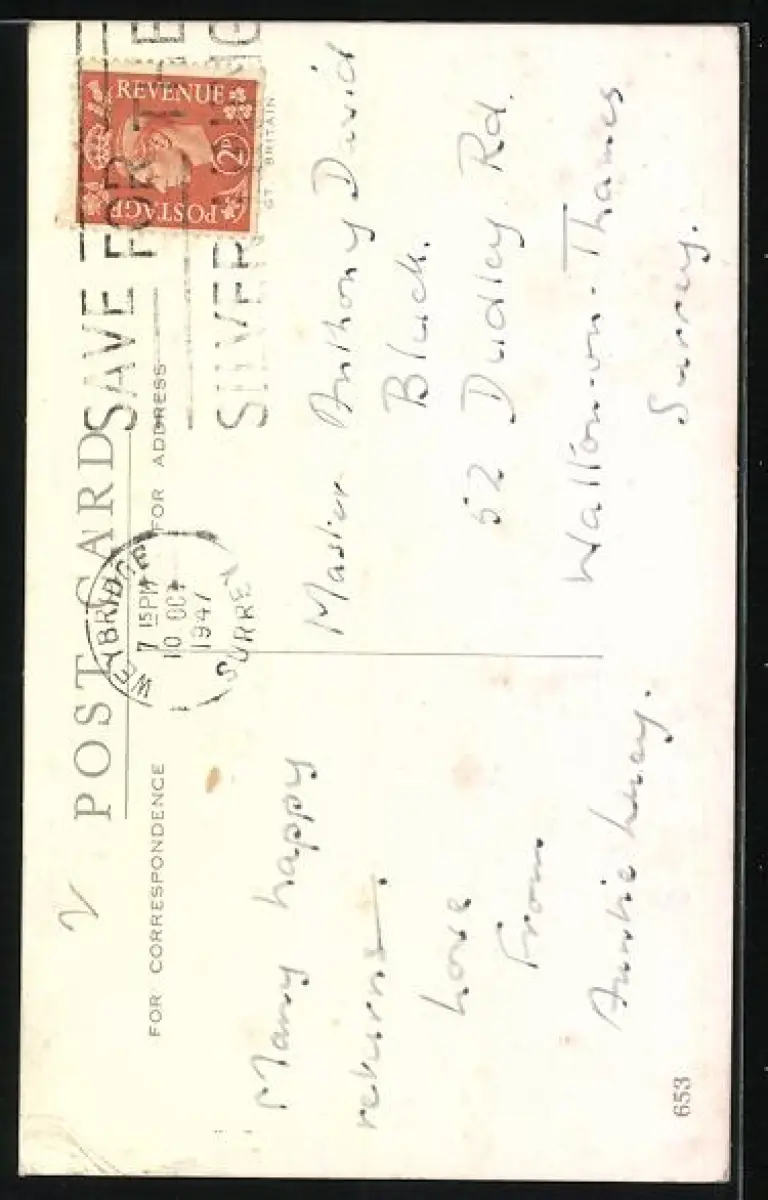 POST CARD
FOR CORRESPONDENCE
FOR ADDRESS
GT. BRITAIN
REVENUE
2D
POSTAGE
SAVE
FOR THE
SILVER
WEYBRIDGE
7 15 PM
10 OCT
1947
SURREY
Many happy
returns.
Love
From
Auntie Lucy.
Master Anthony David
Bluck.
52 Dudley Rd.
Walton-on-Thames
Surrey.
653